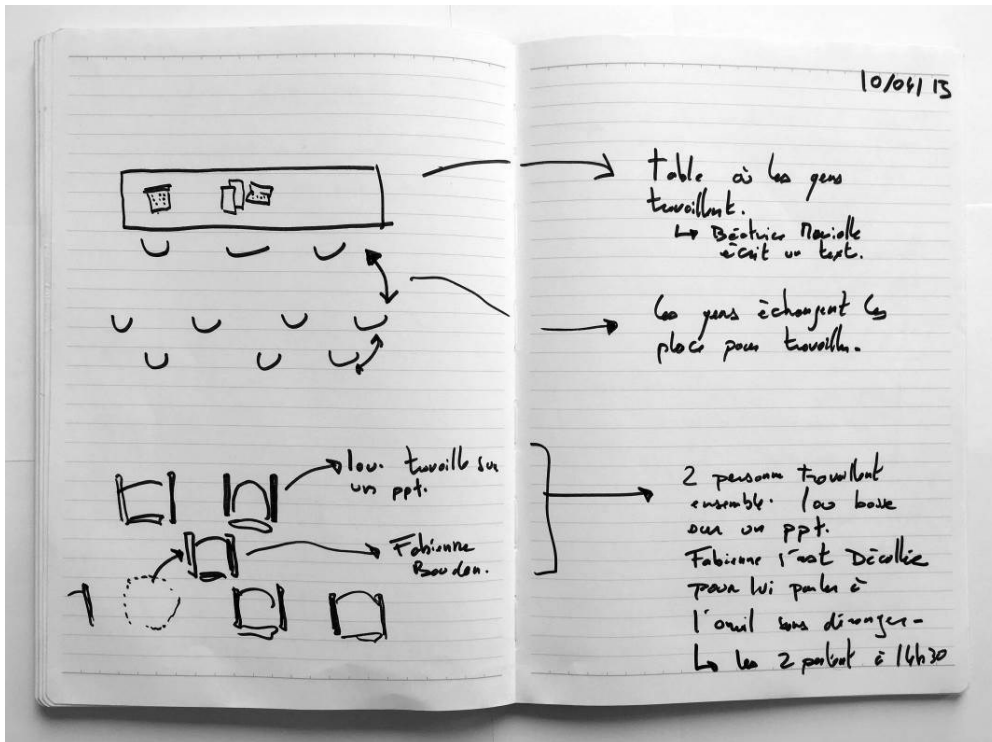 10/04/15
Table où les gens
travaillent.
↳ Béatrice
écrit un text.
les gens échangent les
place pour travailler.
lou. travaille sur
un ppt.
Fabienne
2 personne travaillent
ensemble. lou bosse
sur un ppt.
Fabienne s'est Décollée
pour lui parler à
l'oreil sans déranger.
↳ les 2 partent à 14h30